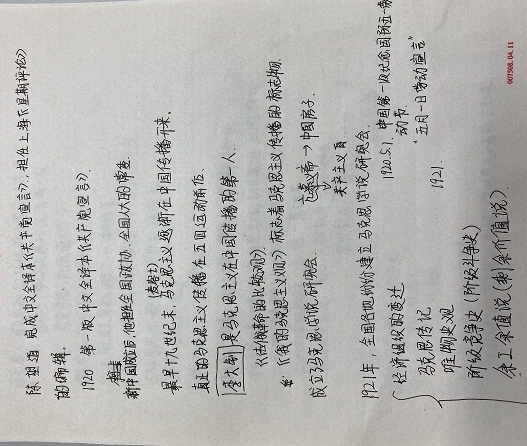 陈望道 完成中文全译本《共产党宣言》，担任上海《星期评论》
的编辑。
1920 第一版中文全译本《共产党宣言》
新中国成立后，他担任全国政协、全国人大的常委
最早十九世纪末，马克思主义逐渐在中国传播开来。
真正的马克思主义传播在五四运动前后。
李大钊 是马克思主义在中国传播的第一人。
《法俄革命的比较观》
《我的马克思主义观》标志着马克思主义传播的标志物
成立马克思学说研究会。 → 中国房子
共产主义
1921年，全国各地纷纷建立马克思学说研究会
1920.5.1. 中国第一次纪念国际五一劳
动节
"五月一日劳动宣言"
1921.
经济组织的变迁
马克思传记
唯物史观
阶级竞争史（阶级斗争史）
余工余值说（剩余价值说）
007508.04.11